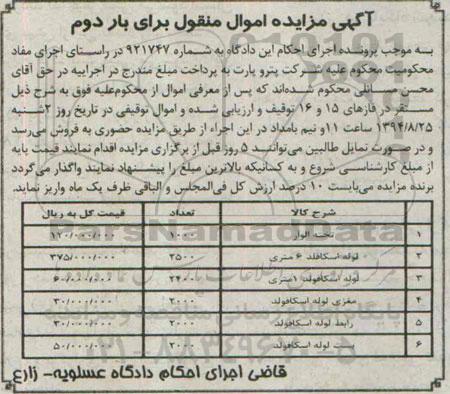 آگهی مزایده اموال منقول برای بار دوم
به موجب پرونده اجرای احکام این دادگاه به شماره ۹۲۱۷۴۷ در راستای اجرای مفاد
محکومیت محکوم علیه شرکت پترو پارت به پرداخت مبلغ مندرج در اجراییه در حق آقای
محسن مسائلی محکوم شده‌اند که پس از معرفی اموال از محکوم‌علیه فوق به شرح ذیل
مستقر در فازهای ۱۵ و ۱۶ توقیف و ارزیابی شده و اموال توقیفی در تاریخ روز ۲شنبه
۱۳۹۴/۸/۲۵ ساعت ۱۱و نیم بامداد در این اجراء از طریق مزایده حضوری به فروش می‌رسد
و در صورت تمایل طالبین می‌توانند ۵ روز قبل از برگزاری مزایده اقدام نمایند قیمت پایه
از مبلغ کارشناسی شروع و به کسانیکه بالاترین مبلغ را پیشنهاد نمایند واگذار می‌گردد
برنده مزایده می‌بایست ۱۰ درصد ارزش کل فی‌المجلس و الباقی ظرف یک ماه واریز نماید.
شرح کالا تعداد قیمت کل به ریال
۱ تخته الوار ۱۰۰۰
۲ لوله اسکافلد ۶ متری ۲۵۰۰ ۳۷۵/۰۰۰/۰۰۰
۳ لوله اسکافولد ۱متری ۲۴۰۰ ۶۰/۰۰۰/۰۰۰
۴ مغزی لوله اسکافولد ۲۰۰۰ ۳۰/۰۰۰/۰۰۰
۵ رابط لوله اسکافولد ۲۰۰۰ ۳۰/۰۰۰/۰۰۰
۶ بست لوله اسکافولد ۲۰۰۰ ۵۰/۰۰۰/۰۰۰
قاضی اجرای احکام دادگاه عسلویه- زارع
ParsNamadData
۰۲۱-۸۸۳۴۹۶۷۰-۵